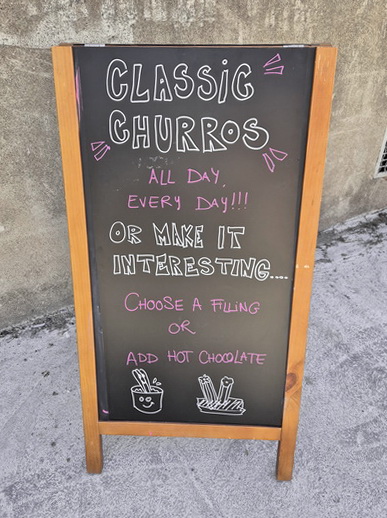 CLASSIC
CHURROS
ALL DAY,
EVERY DAY!!!
OR MAKE IT
INTERESTING....
CHOOSE A FILLING
OR
ADD HOT CHOCOLATE